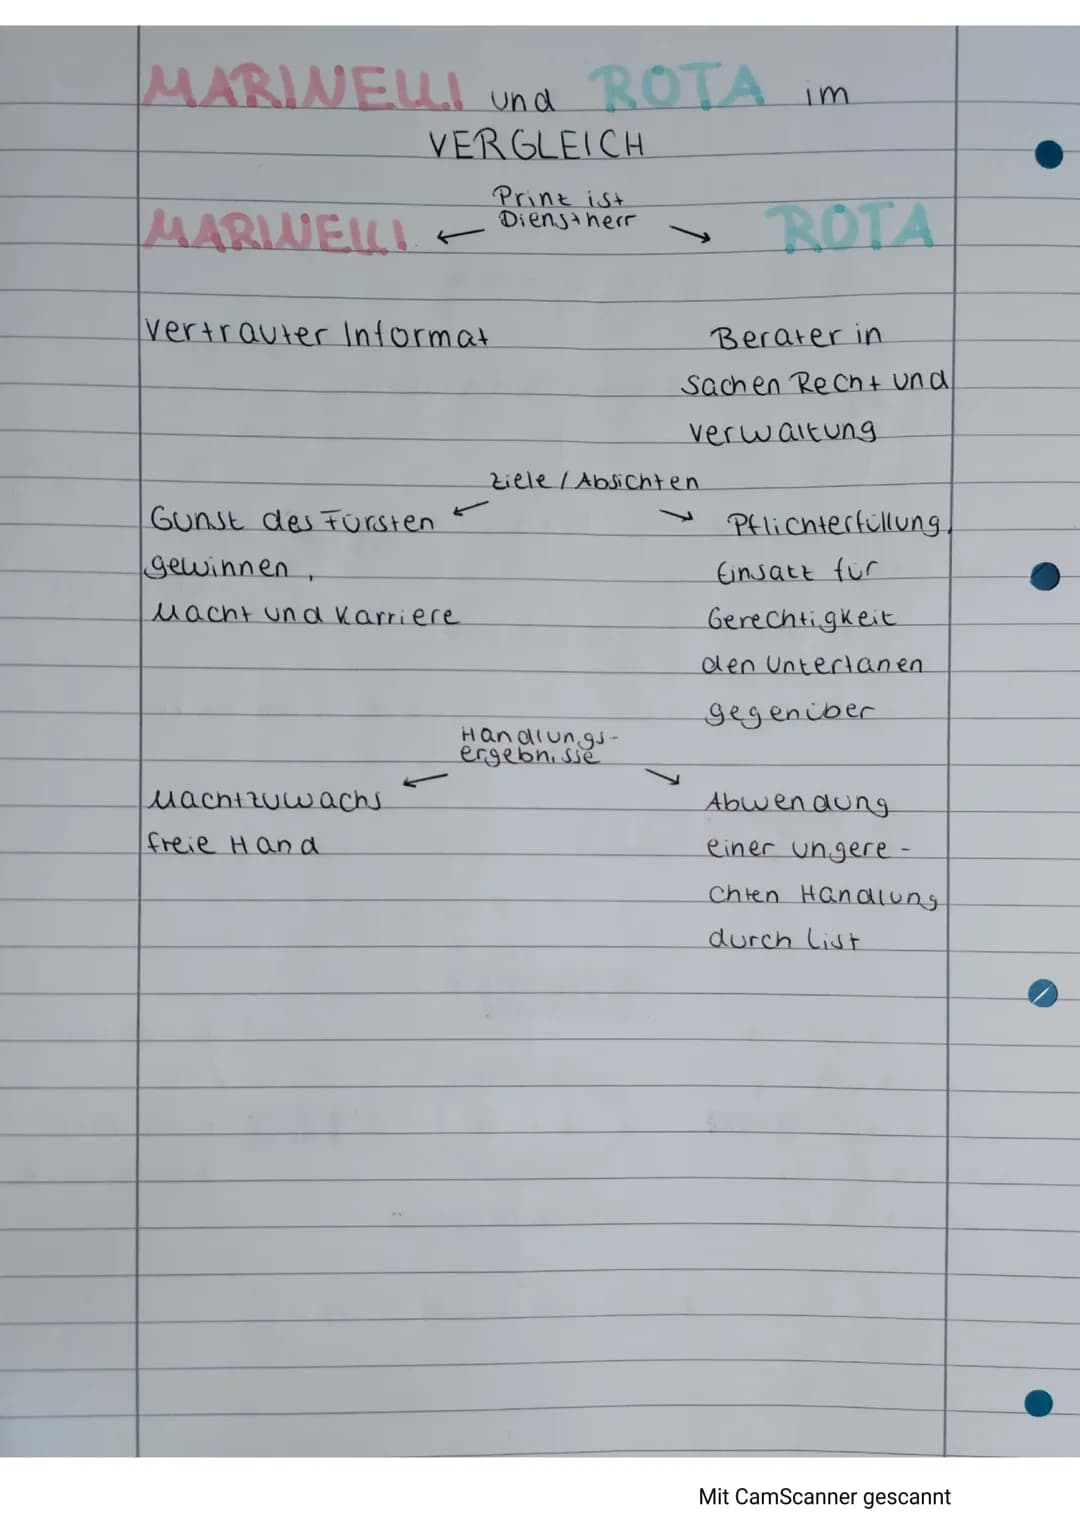 MARINELLI und ROTA im
VERGLEICH
Prinz ist
Dienstherr
MARINELLI ROTA
Vertrauter Informat
Berater in
Sachen Recht und
Verwaltung
Ziele / Absichten
Gunst des Fürsten
gewinnen,
Macht und Karriere
Pflichterfüllung,
Einsatz für
Gerechtigkeit
den Untertanen
gegenüber
Handlungs-
ergebnisse
Machtzuwachs
freie Hand
Abwendung
einer ungere-
chten Handlung
durch List
Mit CamScanner gescannt